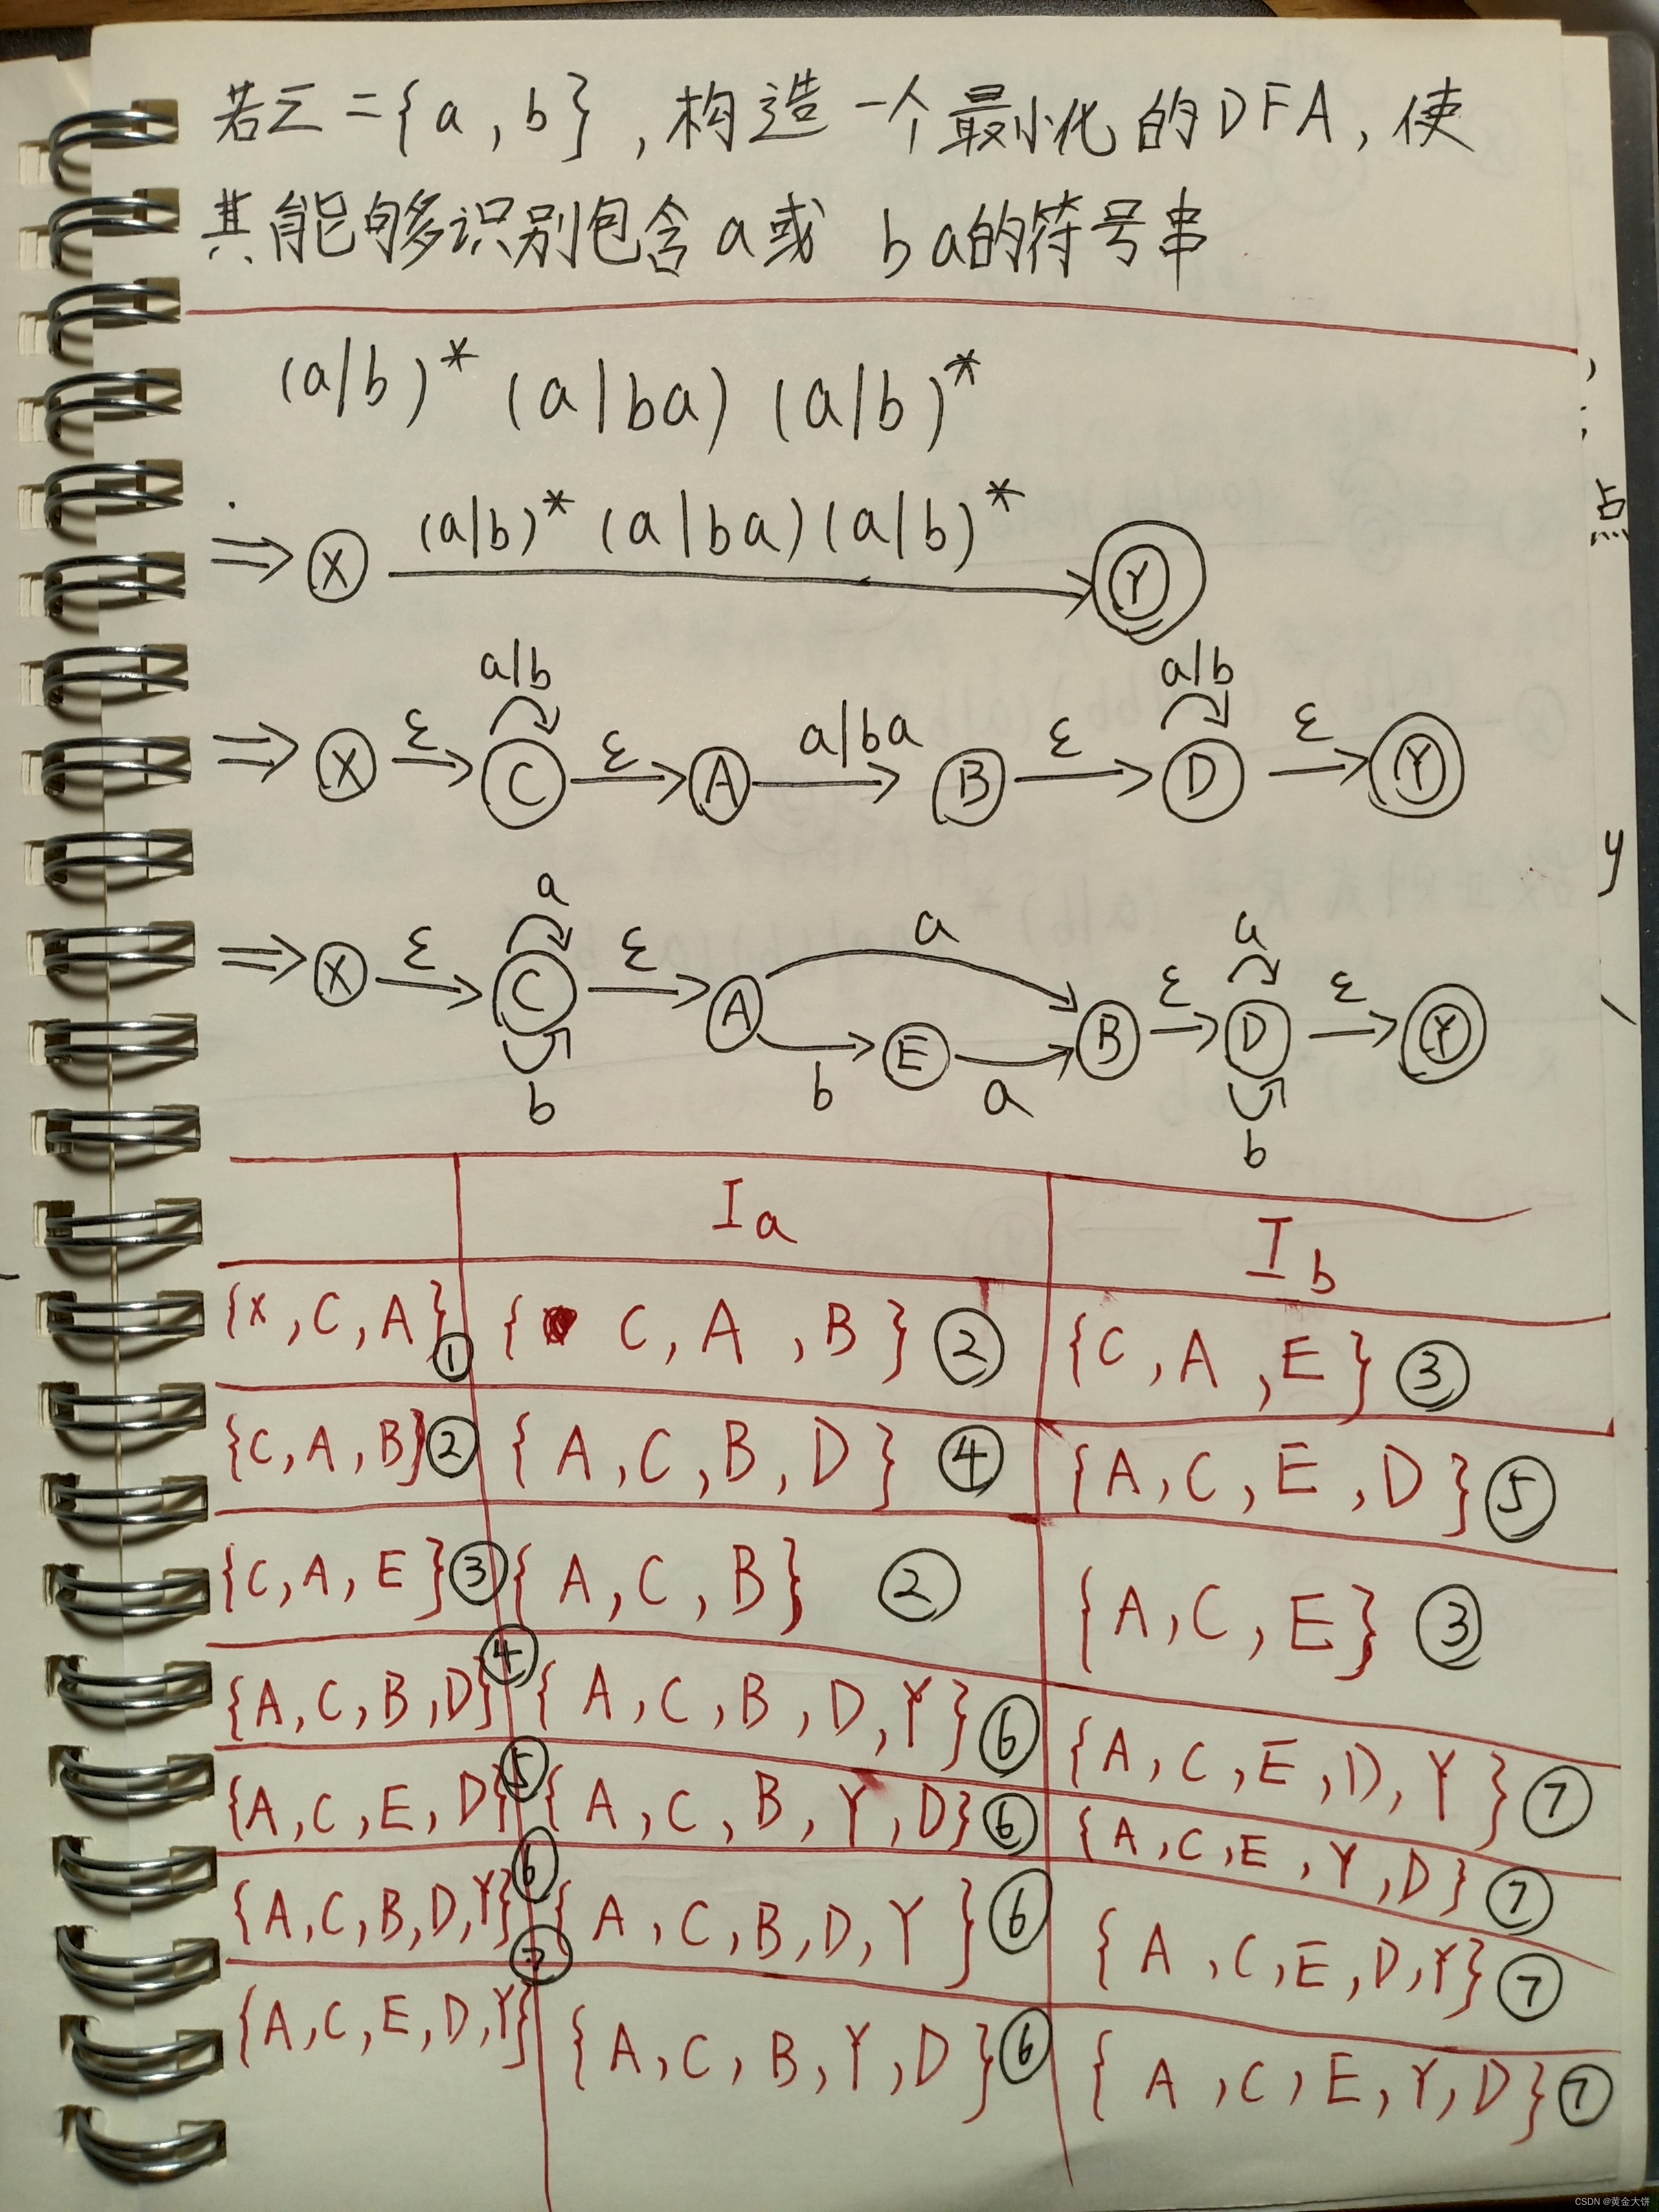 若Σ={a,b},构造一个最小化的DFA,使
其能够识别包含a或 ba的符号串
(a|b)* (a|ba) (a|b)*
⇒ X (a|b)* (a|ba) (a|b)* Y
a|b a|b
⇒ X ε C ε A a|ba B ε D ε Y
a a a
⇒ X ε C ε A E B ε D ε Y
b b a b
Ia Ib
{X,C,A} ① { C,A,B} ② {C,A,E} ③
{C,A,B} ② {A,C,B,D} ④ {A,C,E,D} ⑤
{C,A,E} ③ {A,C,B} ② {A,C,E} ③
{A,C,B,D} ④ {A,C,B,D,Y} ⑥ {A,C,E,D,Y} ⑦
{A,C,E,D} ⑤ {A,C,B,Y,D} ⑥ {A,C,E,Y,D} ⑦
{A,C,B,D,Y} ⑥ {A,C,B,D,Y} ⑥ {A,C,E,D,Y} ⑦
{A,C,E,D,Y} ⑦ {A,C,B,Y,D} ⑥ {A,C,E,Y,D} ⑦
点
y
CSDN @黄金大饼